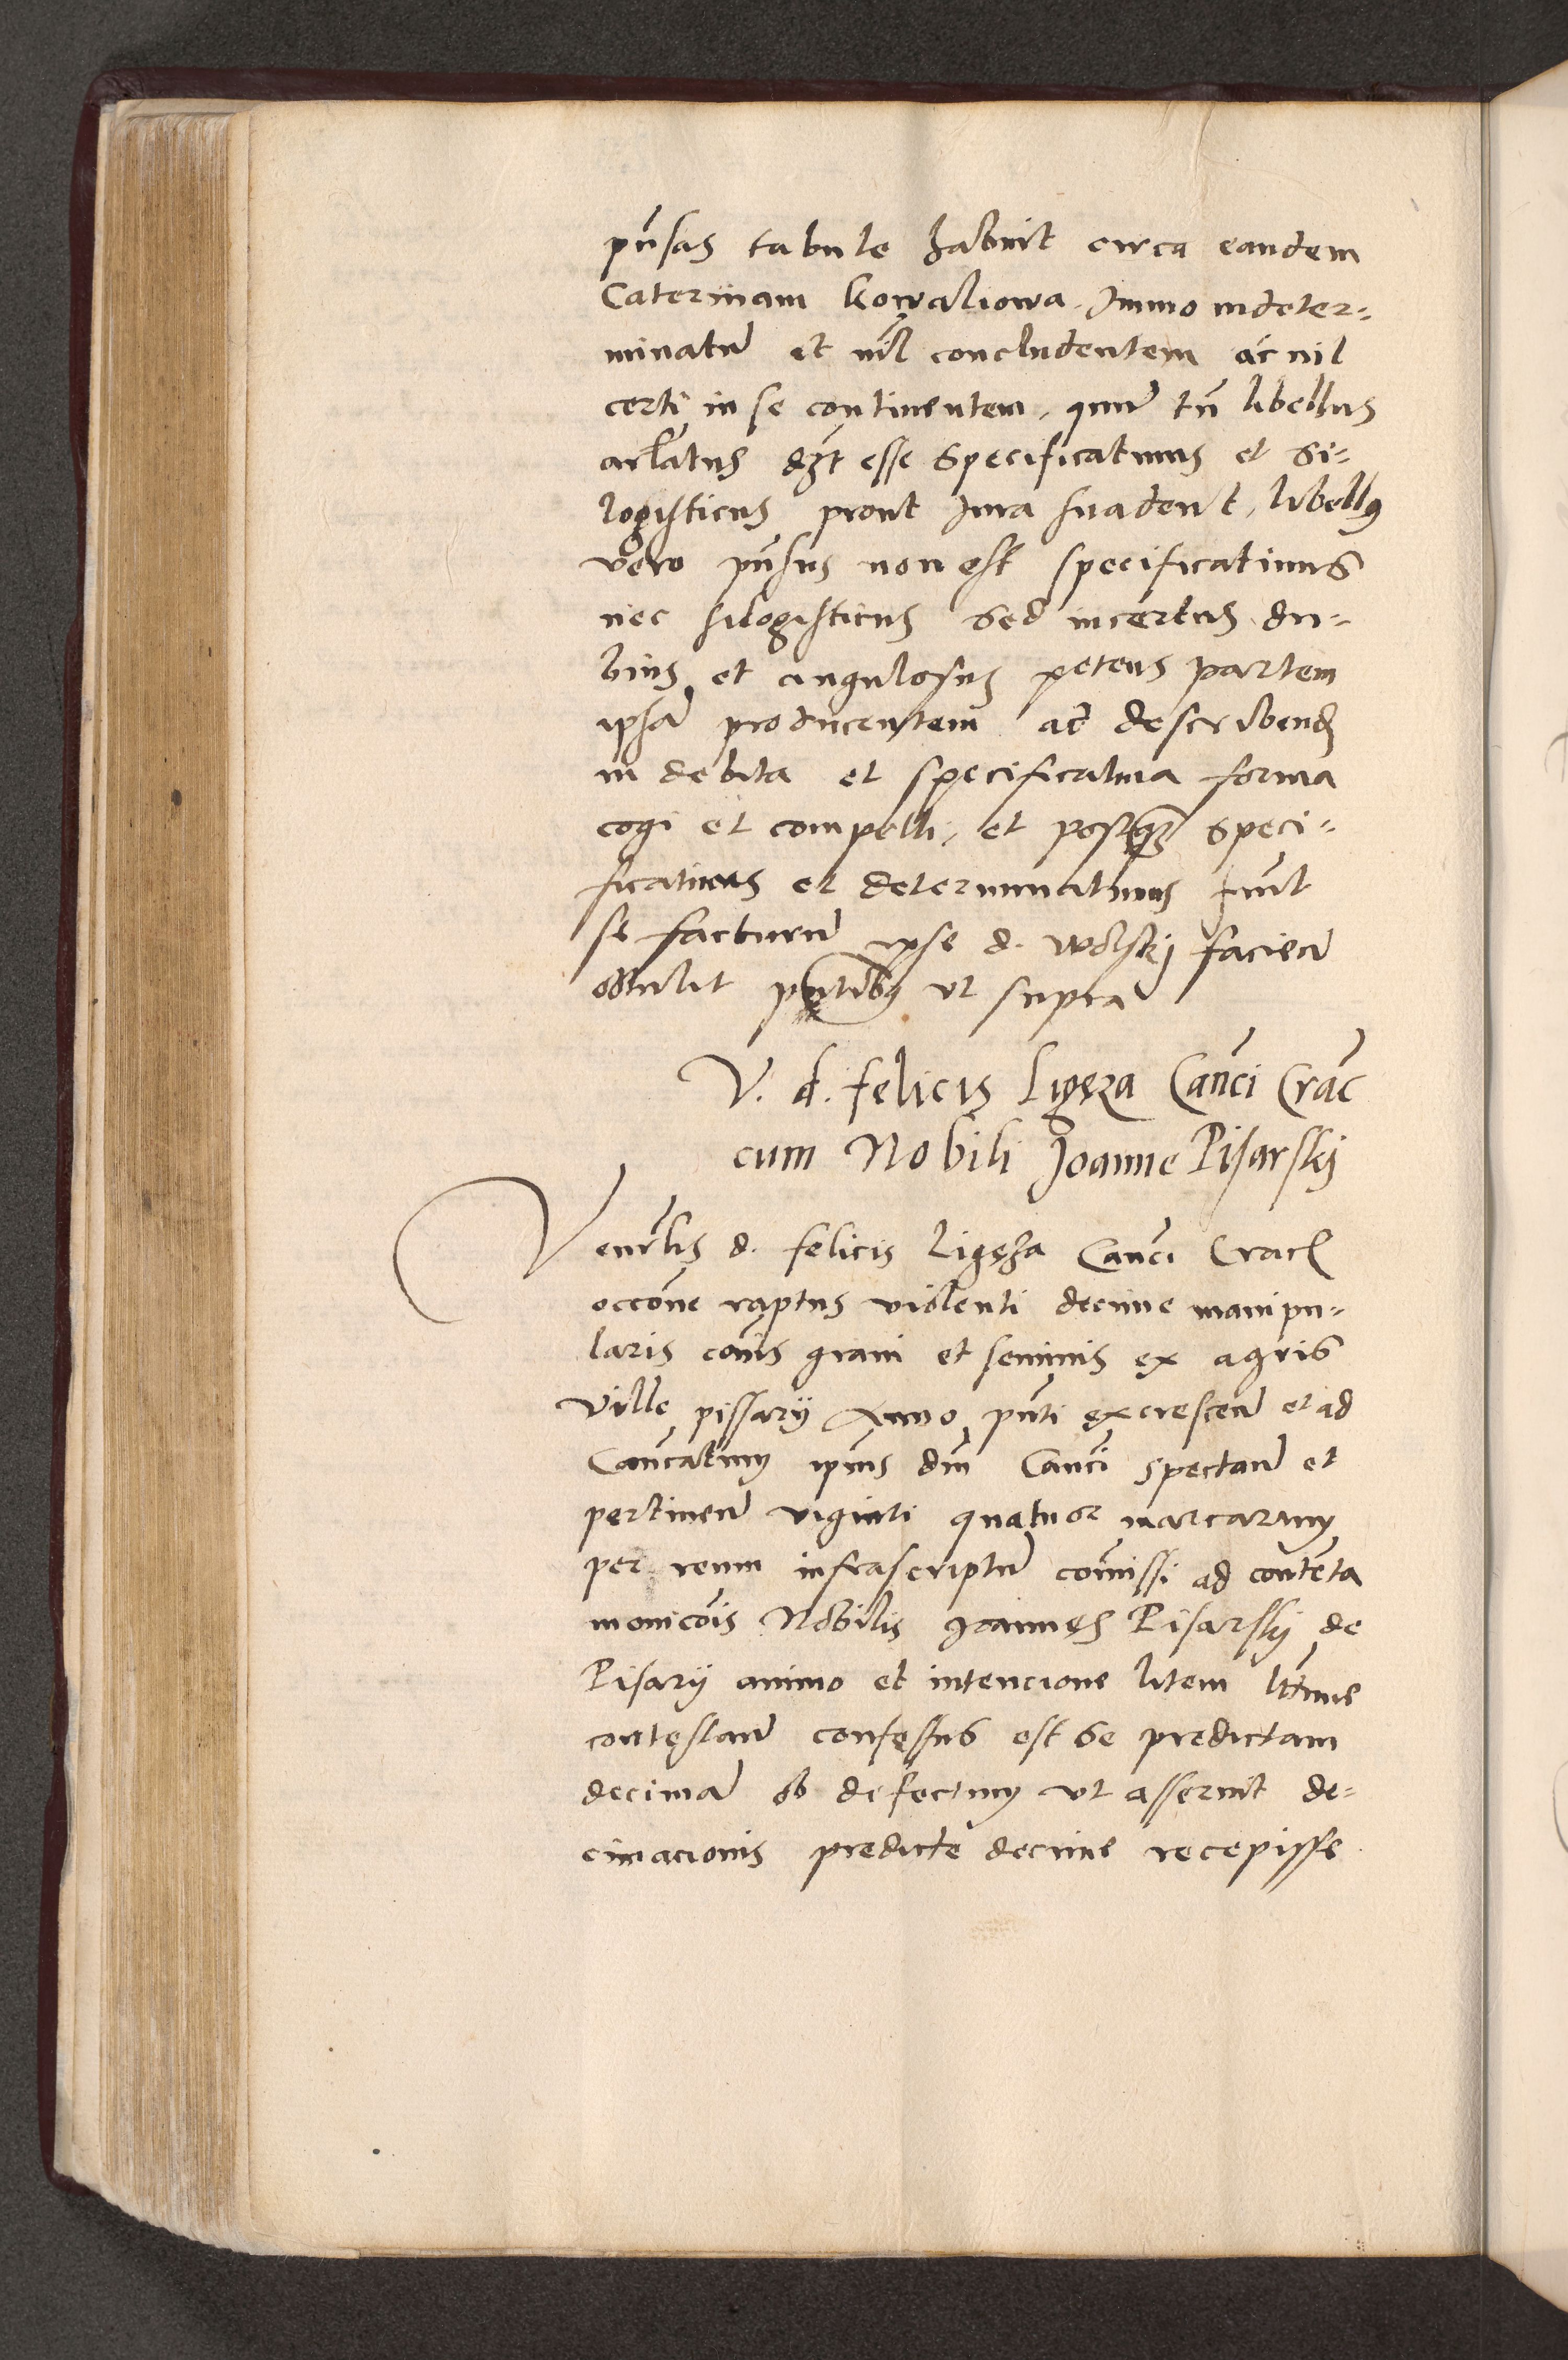 pn̄sas tabule habuit circa eandem
Caterinam Kowaliowa. Immo indeter=
minatu̅ et nīl concludentem ac nil
certi in se continentem, quu̅ tn̄ libellus
arlatus dz̄t esse specificatiuus et si=
logisticus prout Iura suadent, libellꝰ
vero pn̄sus non est specificatiuus
nec silogisticus sed incertus du=
bius et angulosus petens partem
ipsā producentem ad describend
in debita et specificatiua forma
cogi et compelli, et postq̄ȝ speci=
ficatiuus et determinatiuus fuīt
se facturu̅ ipse d. Wolskj facien̄
obtulit pn̄tibꝰ vt supra
V. d. felicis Ligęza Can̄ci Crac̄
cum Nobili Joanne Pisarskj
Venr̄lis d. felicis Ligęza Can̄ci Crac
occōne raptus violenti decime manipu=
laris com̄s grani et seminis ex agris
ville pissarij Anno pn̄ti excrescen̄ et ad
Can̄catum ipīus dn̄i Can̄ci spectan̄ et
pertinen̄ viginti quatuor marcarum
per reum infrascriptu̅ com̄issi ad contenta
monicōis Nobilis Joannes Pisarskj de
Pisarij animo et intencione litem lt̄time
contestan̄ confessus est se predictam
decimā ob defectum vt asseruit de=
cimacionis predicte decime recepisse